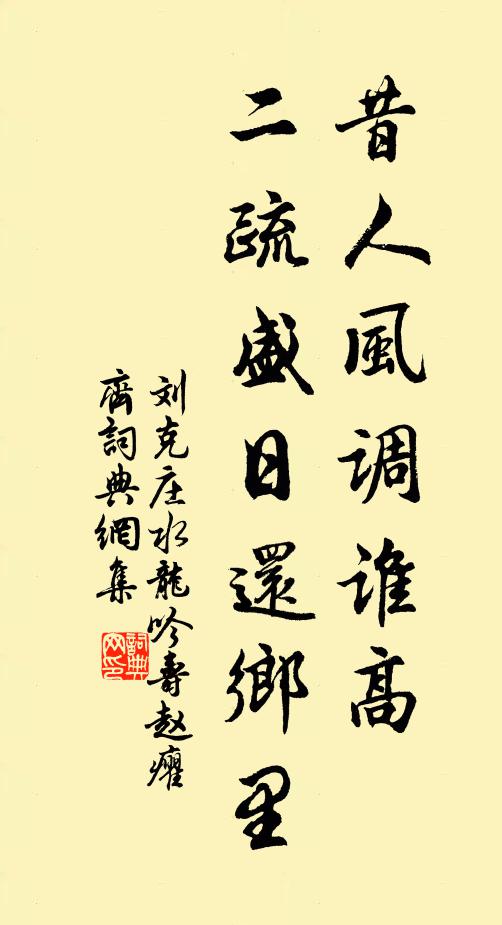 昔人風调誰高
二疏盛日還鄉里
刘克庄水龍吟壽赵癯
齊詞典網集
詞典网印